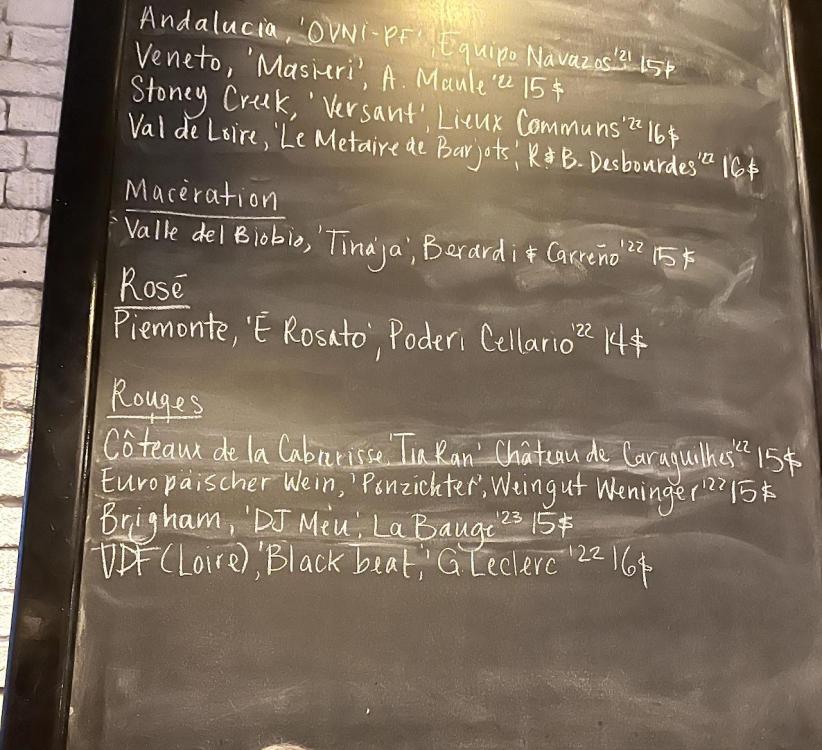 Andalucia, 'OVNI-PF', Equipo Navazos '21 15$
Veneto, 'Masieri', A. Maule '22 15$
Stoney Creek, 'Versant', Lieux Communs '22 16$
Val de Loire, 'Le Metaire de Barjots', R & B. Desbourdes '22 16$
Macération
Valle del Biobio, 'Tinaja', Berardi & Carreño '22 15$
Rosé
Piemonte, 'È Rosato', Poderi Cellario '22 14$
Rouges
Côteaux de la Cabrerisse 'Tia Ran' Château de Caraguilhes '22 15$
Europäischer Wein, 'Ponzichter', Weingut Weninger '22 15$
Brigham, 'DJ Meu', La Bauge '23 15$
VDF (Loire), 'Black beat,' G Leclerc '22 16$